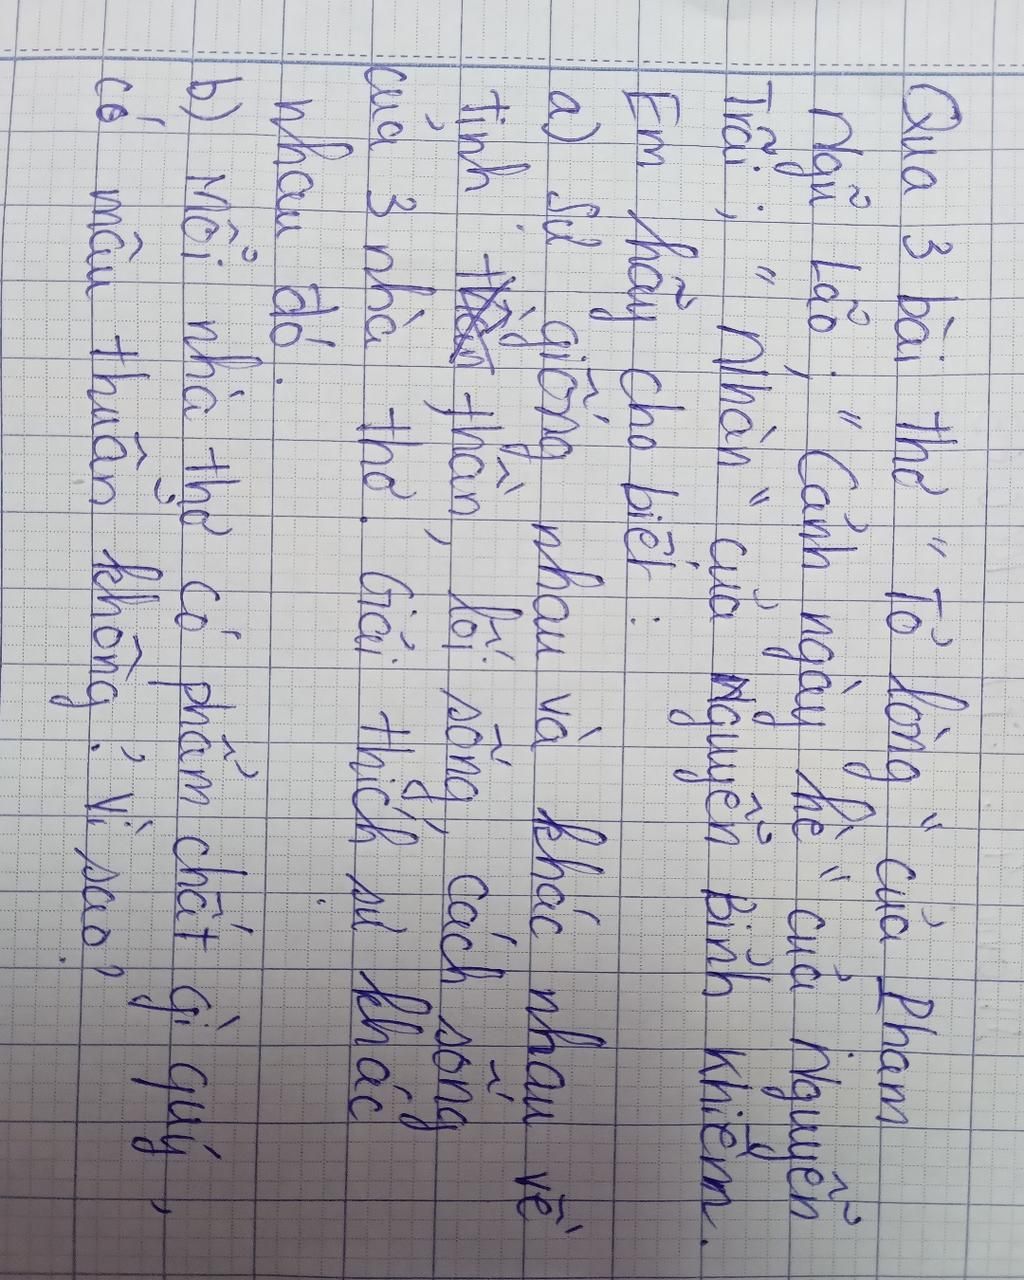 Qua 3 bài thơ "Tỏ lòng" của Phạm
Ngũ Lão ; "Cảnh ngày hè" của Nguyễn
Trãi ; "Nhàn" của Nguyễn Bỉnh Khiêm.
Em hãy cho biết :
a) Sự giống nhau và khác nhau về
tinh thần, lối sống, cách sống
của 3 nhà thơ. Giải thích sự khác
nhau đó.
b) Mỗi nhà thơ có phẩm chất gì quý,
có mâu thuẫn không ? Vì sao?